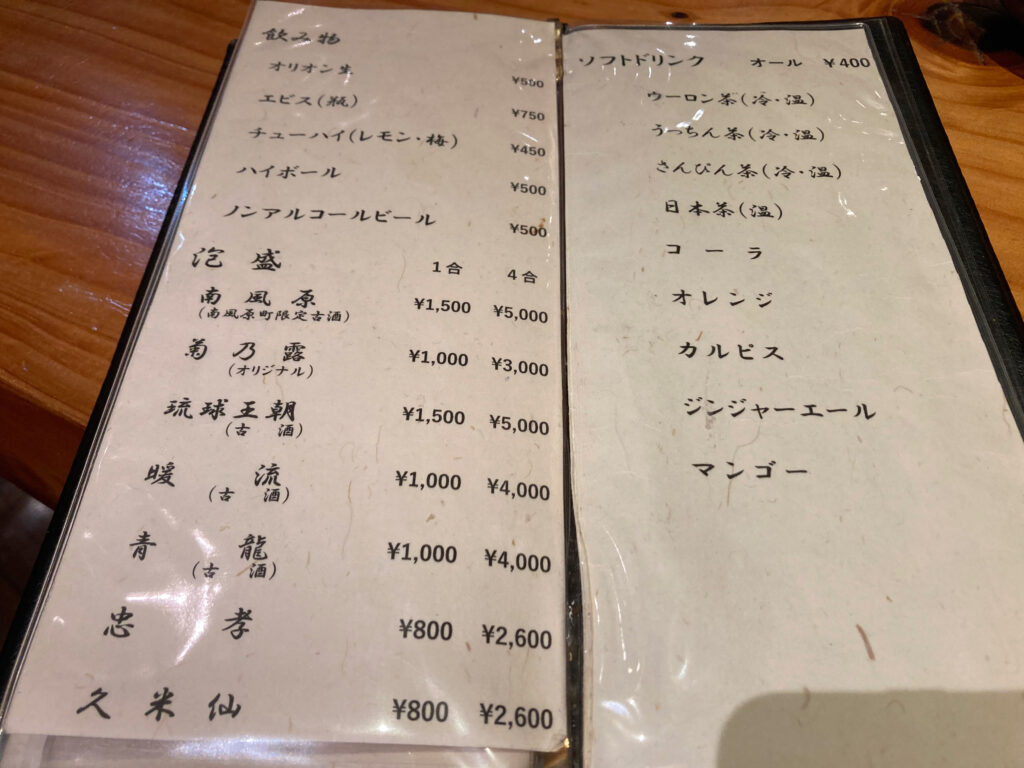 飲み物
オリオン生 ¥500
エビス(瓶) ¥750
チューハイ(レモン・梅) ¥450
ハイボール ¥500
ノンアルコールビール ¥500
泡盛 1合 4合
南風原 ¥1,500 ¥5,000
(南風原町限定古酒)
菊乃露 ¥1,000 ¥3,000
(オリジナル)
琉球王朝 ¥1,500 ¥5,000
(古酒)
暖流 ¥1,000 ¥4,000
(古酒)
青龍 ¥1,000 ¥4,000
(古酒)
忠孝 ¥800 ¥2,600
久米仙 ¥800 ¥2,600
ソフトドリンク オール ¥400
ウーロン茶(冷・温)
うっちん茶(冷・温)
さんぴん茶(冷・温)
日本茶(温)
コーラ
オレンジ
カルピス
ジンジャーエール
マンゴー